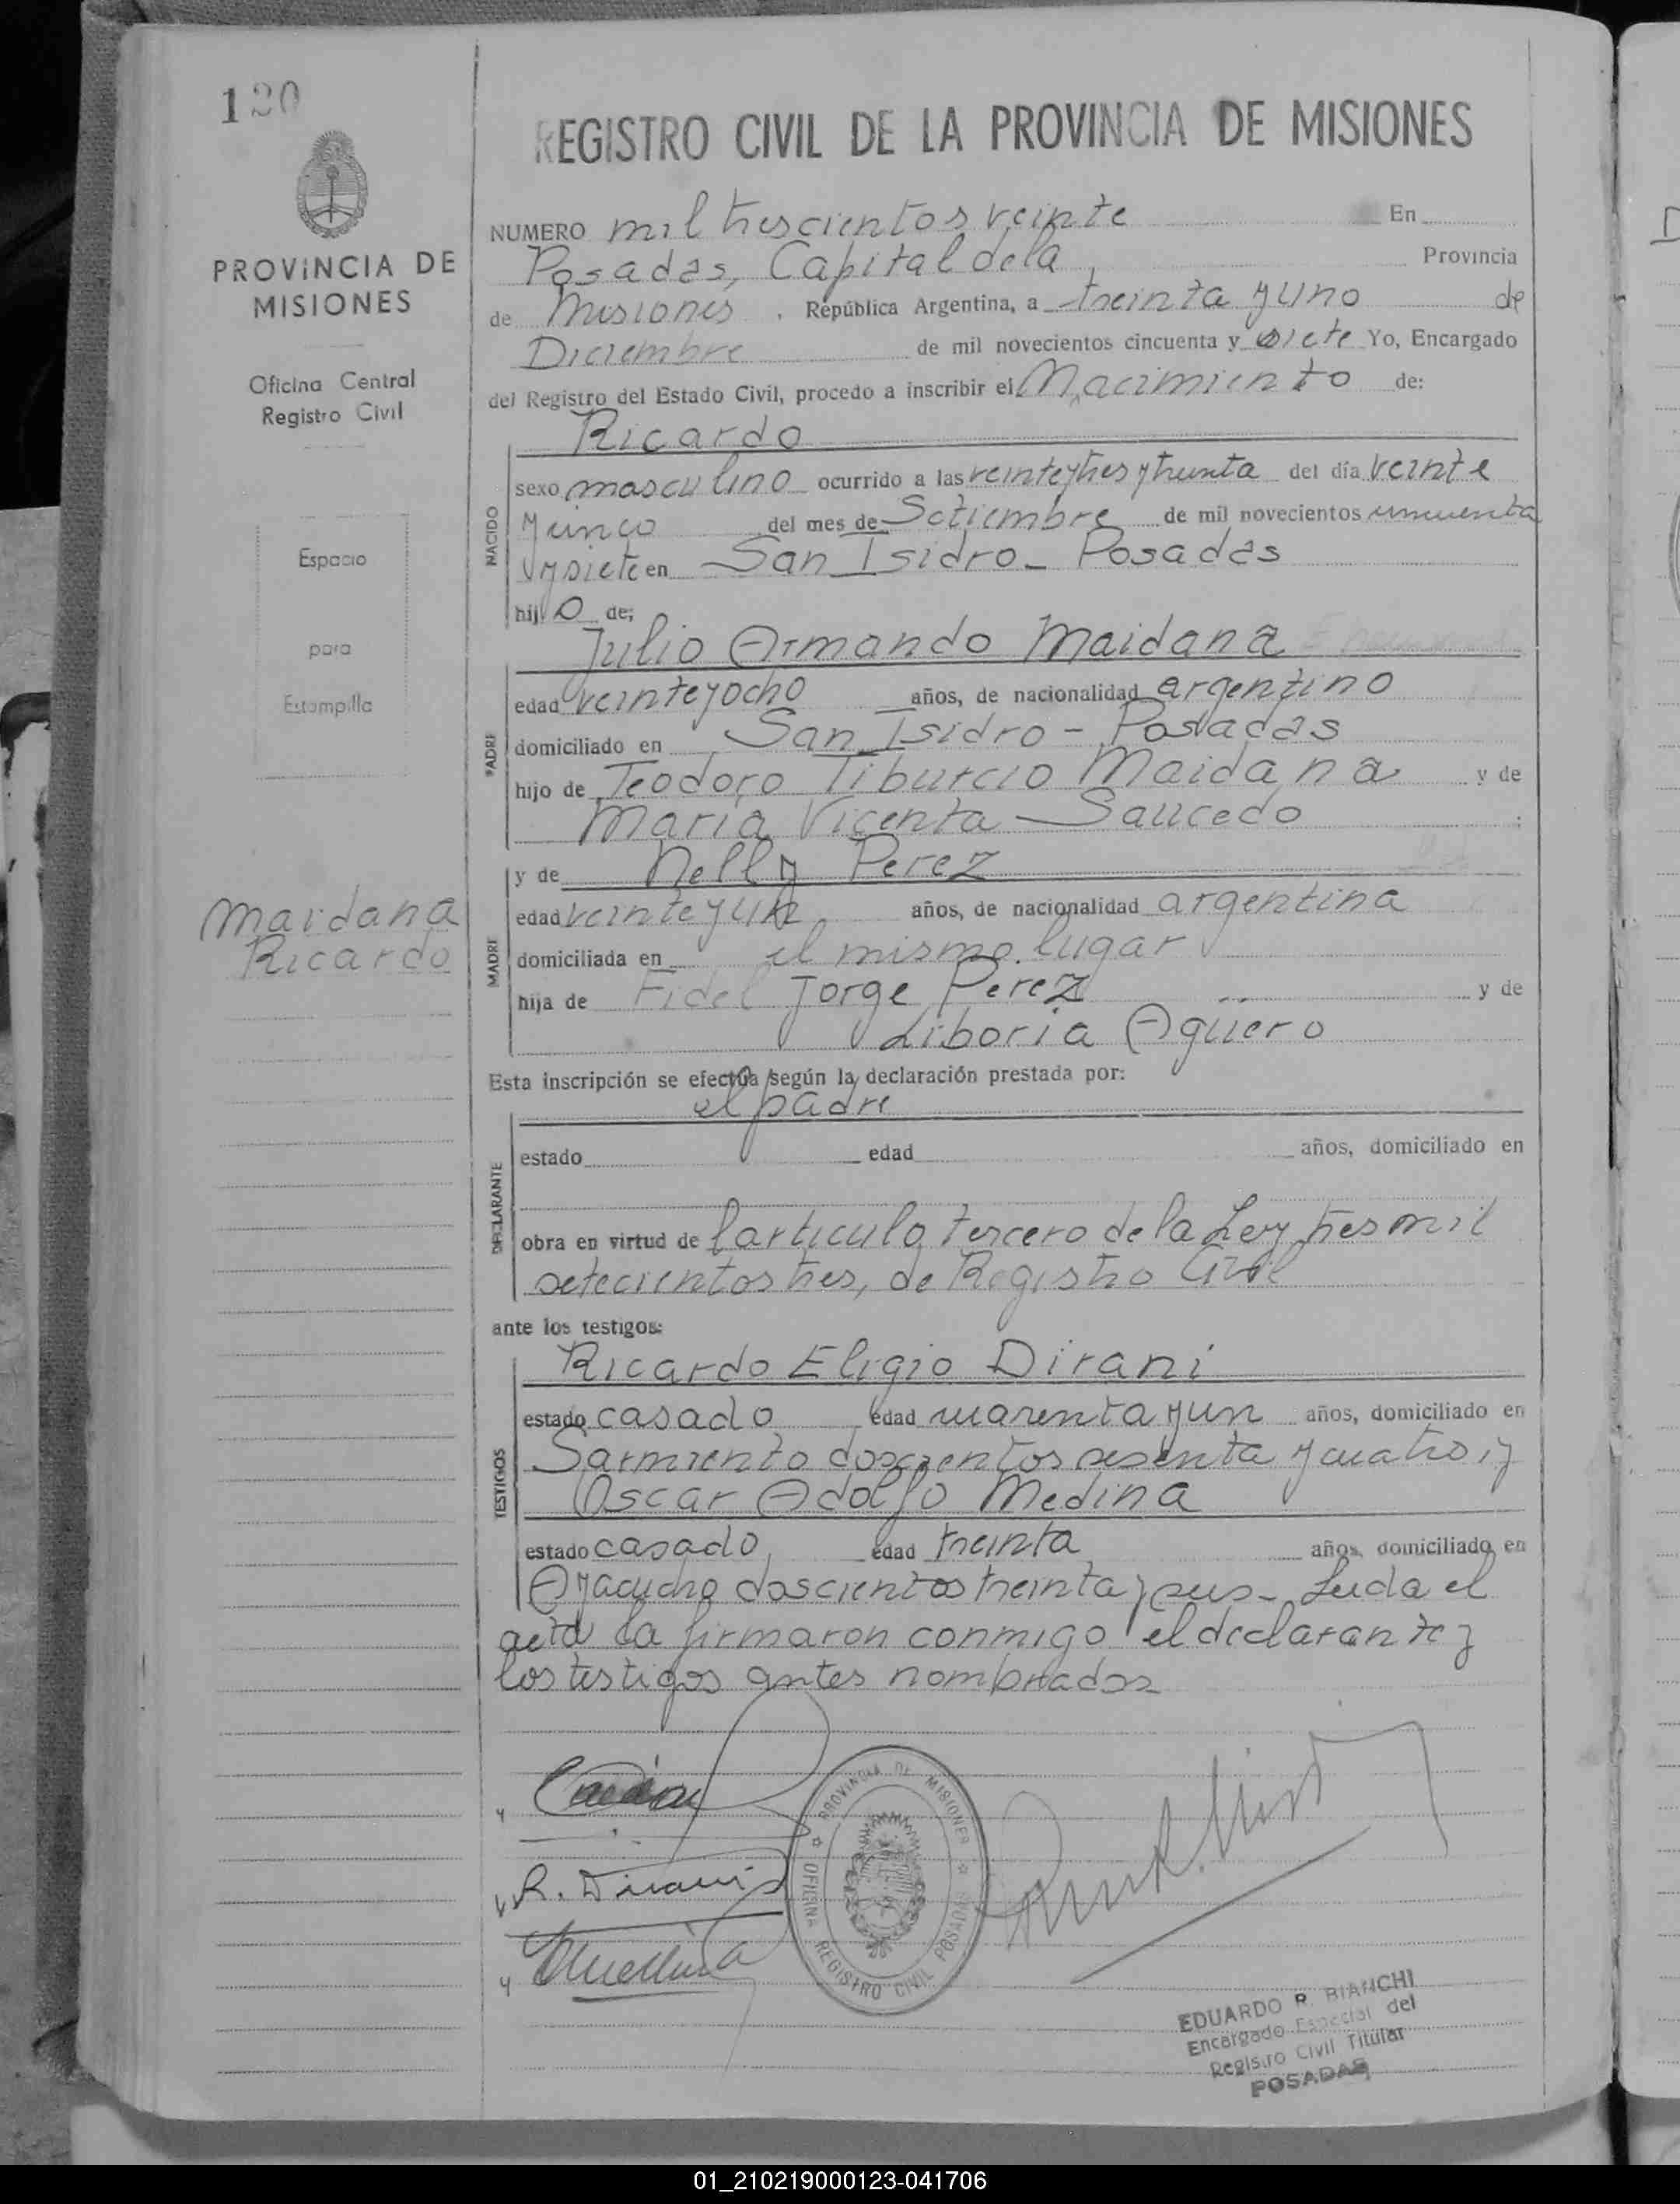 120
PROVINCIA DE
MISIONES
Oficina Central
Registro Civil
Espacio
para
Estampilla
Maidana
Ricardo
REGISTRO CIVIL DE LA PROVINCIA DE MISIONES
NUMERO mil trescientos veinte En
Posadas, Capital de la Provincia
de Misiones, República Argentina, a treinta y uno de
Diciembre de mil novecientos cincuenta y siete Yo, Encargado
del Registro del Estado Civil, procedo a inscribir el Nacimiento de:
Ricardo
NACIDO
sexo masculino ocurrido a las veinte y tres y treinta del día veinte
y cinco del mes de Setiembre de mil novecientos cincuenta
y siete en San Isidro - Posadas
hijo de:
Julio Armando Maidana
PADRE
edad veinte y ocho años, de nacionalidad argentino
domiciliado en San Isidro - Posadas
hijo de Teodoro Tiburcio Maidana y de
María Vicenta Saucedo ;
y de Nelly Perez
MADRE
edad veinte y un años, de nacionalidad argentina
domiciliada en el mismo lugar
hija de Fidel Jorge Perez y de
Liboria Agüero
Esta inscripción se efectúa según la declaración prestada por:
el padre
DECLARANTE
estado edad años, domiciliado en
obra en virtud de l artículo tercero de la Ley tres mil
setecientos tres, de Registro Civil
ante los testigos:
Ricardo Eligio Dirani
TESTIGOS
estado casado edad cuarenta y un años, domiciliado en
Sarmiento doscientos sesenta y cuatro, y
Oscar Adolfo Medina
estado casado, edad treinta años, domiciliado en
Ayacucho doscientos treinta y seis - Leida el
acta la firmaron conmigo el declarante y
los testigos antes nombrados
R. Dirani
PROVINCIA DE MISIONES
OFICINA REGISTRO CIVIL POSADAS
EDUARDO R. BIANCHI
Encargado Especial del
Registro Civil Titular
POSADAS
01_210219000123-041706